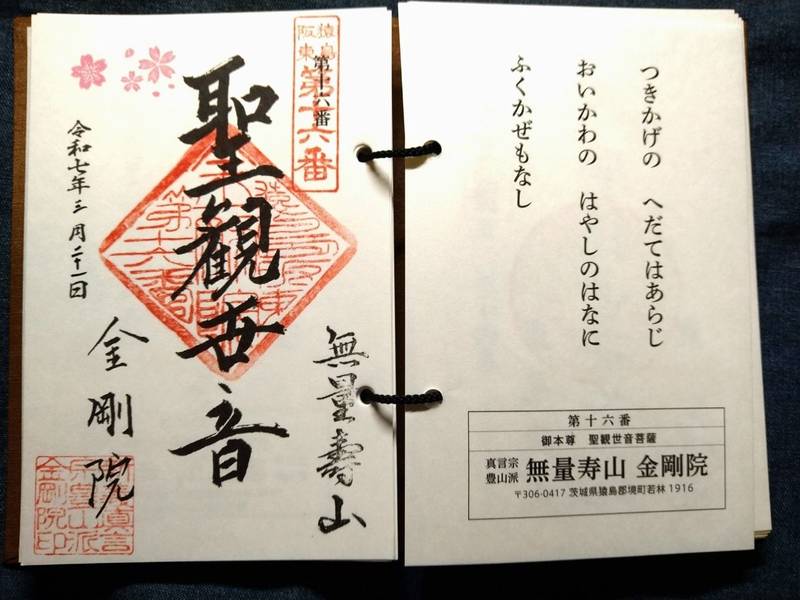 つきかげの　へだてはあらじ
おいかわの　はやしのはなに
ふくかぜもなし
第十六番
御本尊　聖観世音菩薩
真言宗
豊山派
無量寿山 金剛院
〒306-0417 茨城県猿島郡境町若林 1916
猿島
阪東
第十六番
第十六番
無量壽山
聖観世音
令和七年三月二十一日
金剛院